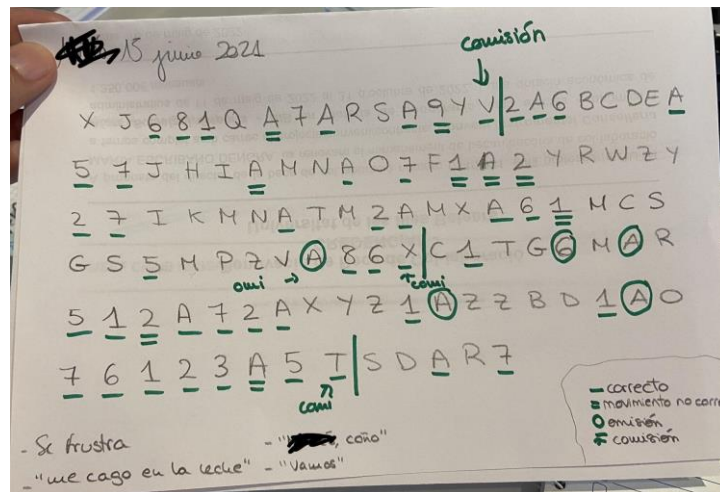 15 junio 2021
comisión
X J 6 8 1 Q A 7 A R S A 9 Y V 2 A 6 B C D E A
5 7 J H I A M N A O 7 F 1 A 2 Y R W Z Y
2 7 I K M N A T M 2 A M X A 6 1 M C S
G S 5 M P Z V A 8 6 X C 1 T G 6 M A R
omi comi
5 1 2 A 7 2 A X Y Z 1 A Z Z B D 1 A O
7 6 1 2 3 A 5 T S D A R 7
comi
correcto
movimiento no corr
omisión
comisión
- Se frustra
- "me cago en la leche"
- " , coño"
- "Vamos"